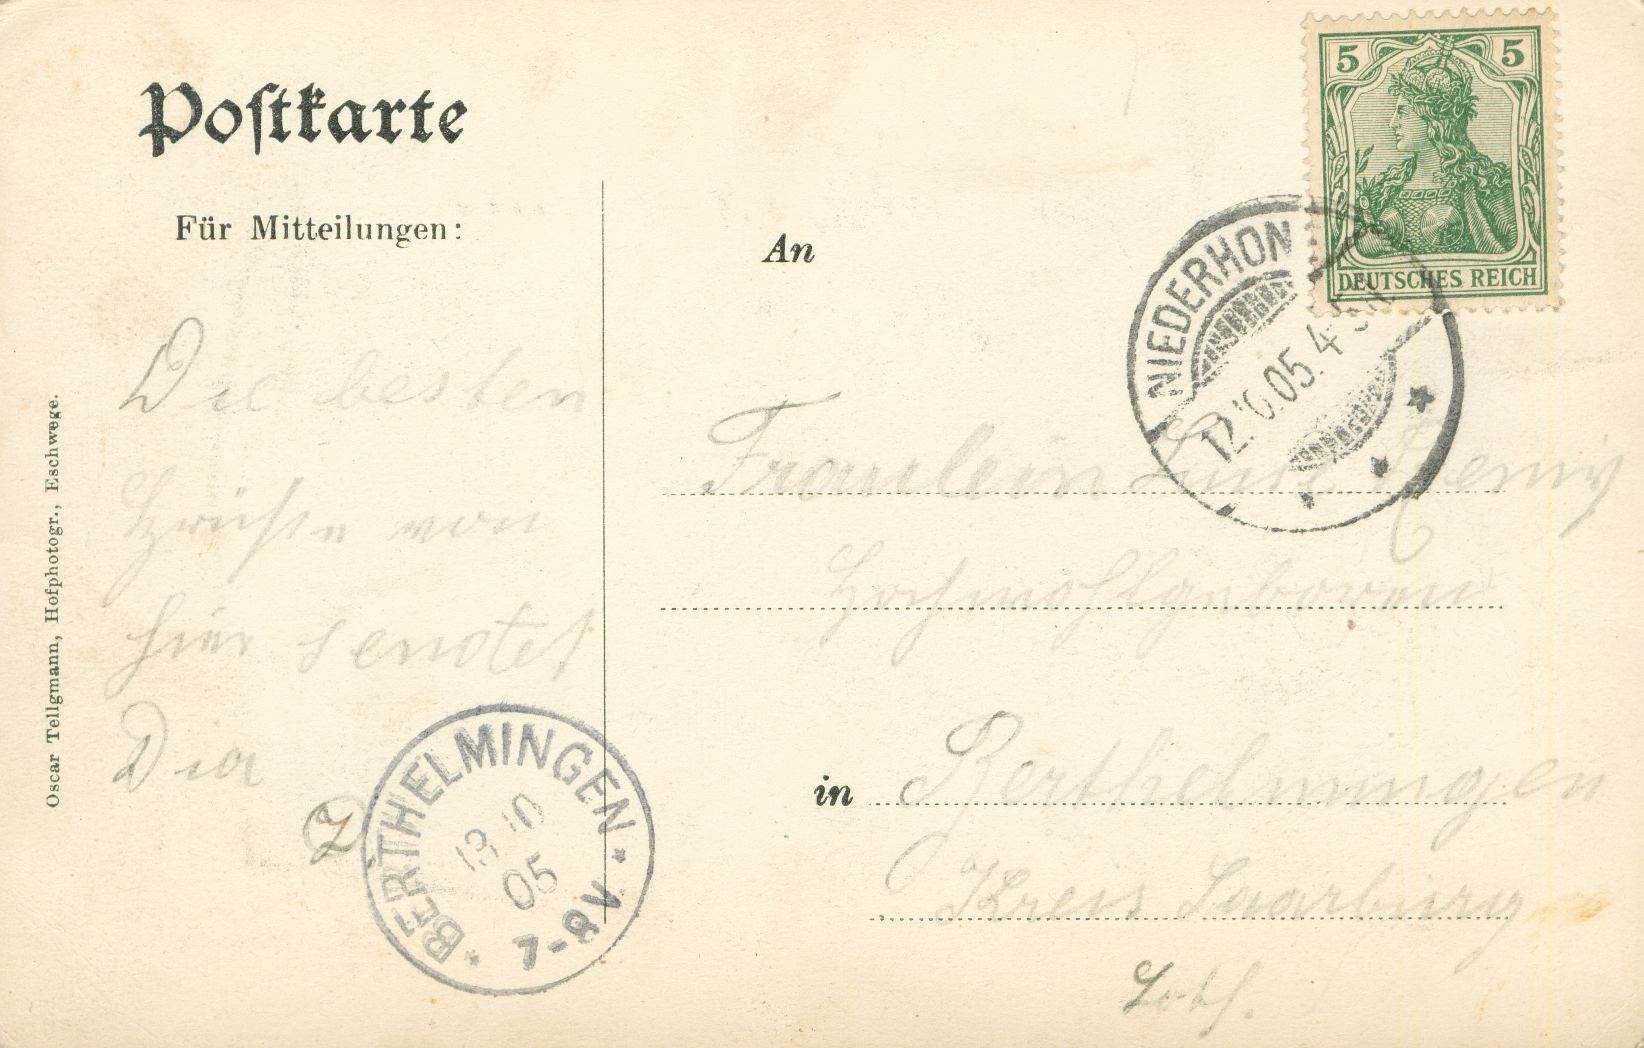 Postkarte
Für Mitteilungen:
Die besten
Grüße von
hier sendet
Dir
Oscar Tellgmann, Hofphotogr., Eschwege.
BERTHELMINGEN
13 10
05
7-8V.
5 5
DEUTSCHES REICH
NIEDERHON
12.10.05. 4-5N
An
Fräulein
Hochwohlgeboren
in Berthelmingen
Kreis Saarburg
Loth.